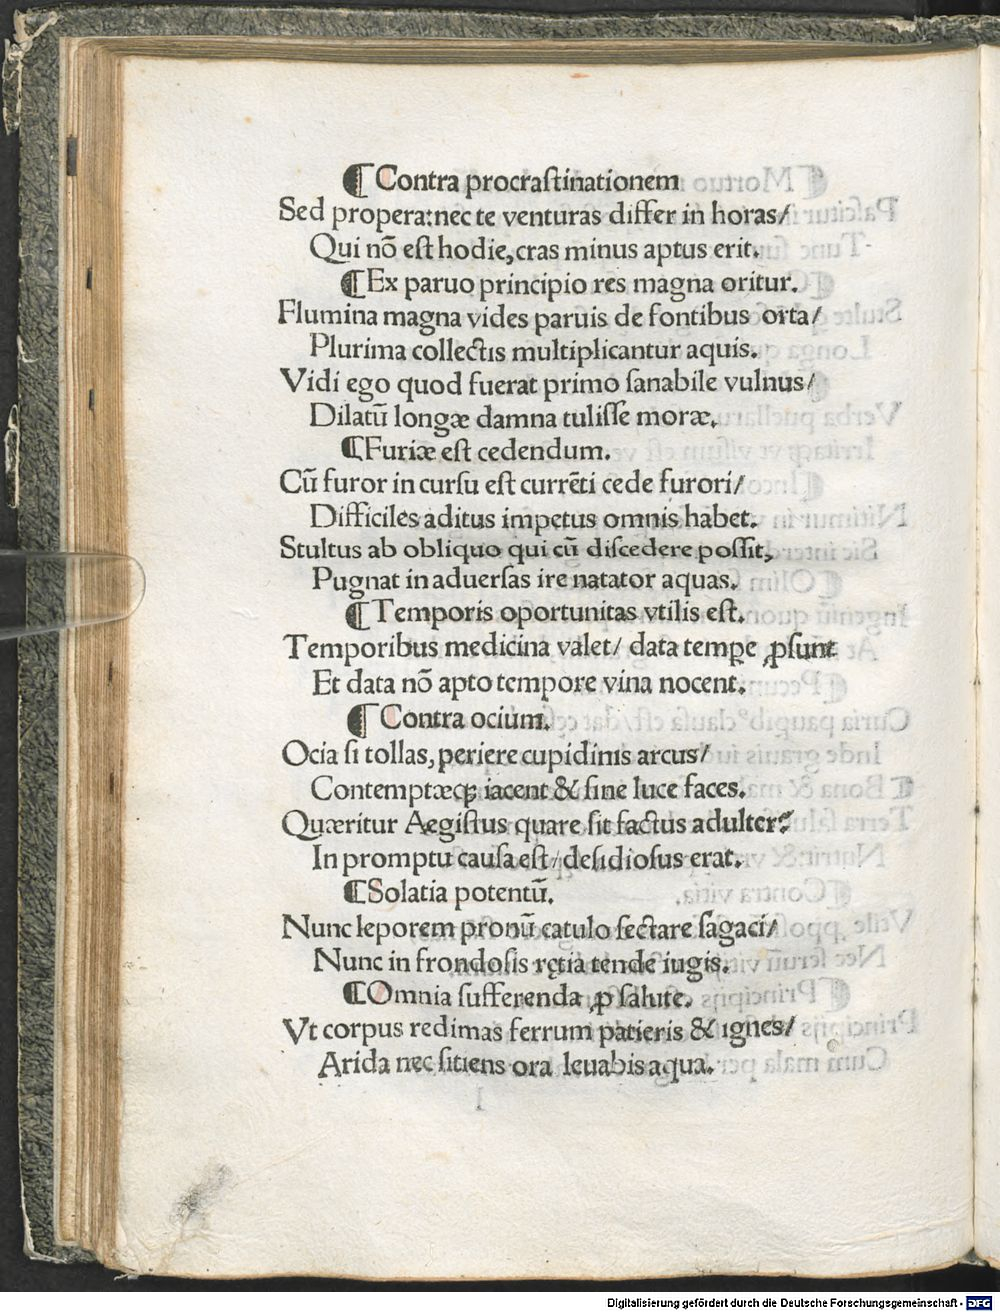 ¶ Contra procraſtinationem
Sed propera: nec te venturas differ in horas/
Qui nō eſt hodie, cras minus aptus erit.
¶ Ex paruo principio res magna oritur.
Flumina magna vides paruis de fontibus orta/
Plurima collectis multiplicantur aquis.
Vidi ego quod fuerat primo ſanabile vulnus/
Dilatū longæ damna tuliſſe moræ.
¶ Furiæ eſt cedendum.
Cū furor in curſu eſt currēti cede furori/
Difficiles aditus impetus omnis habet.
Stultus ab obliquo qui cū diſcedere poſſit,
Pugnat in aduerſas ire natator aquas.
¶ Temporis oportunitas vtilis eſt.
Temporibus medicina valet/ data temꝑe ꝓſunt
Et data nō apto tempore vina nocent.
¶ Contra ocium.
Ocia ſi tollas, periere cupidinis arcus/
Contemptæqꝫ iacent & ſine luce faces.
Quæritur Aegiſtus quare ſit factus adulter?
In promptu cauſa eſt/ deſidioſus erat.
¶ Solatia potentū.
Nunc leporem pronū catulo ſectare ſagaci/
Nunc in frondoſis rętia tende iugis.
¶ Omnia ſufferenda ꝓ ſalute.
Vt corpus redimas ferrum patieris & ignes/
Arida nec ſitiens ora leuabis aqua.
Digitalisierung gefördert durch die Deutsche Forschungsgemeinschaft - DFG